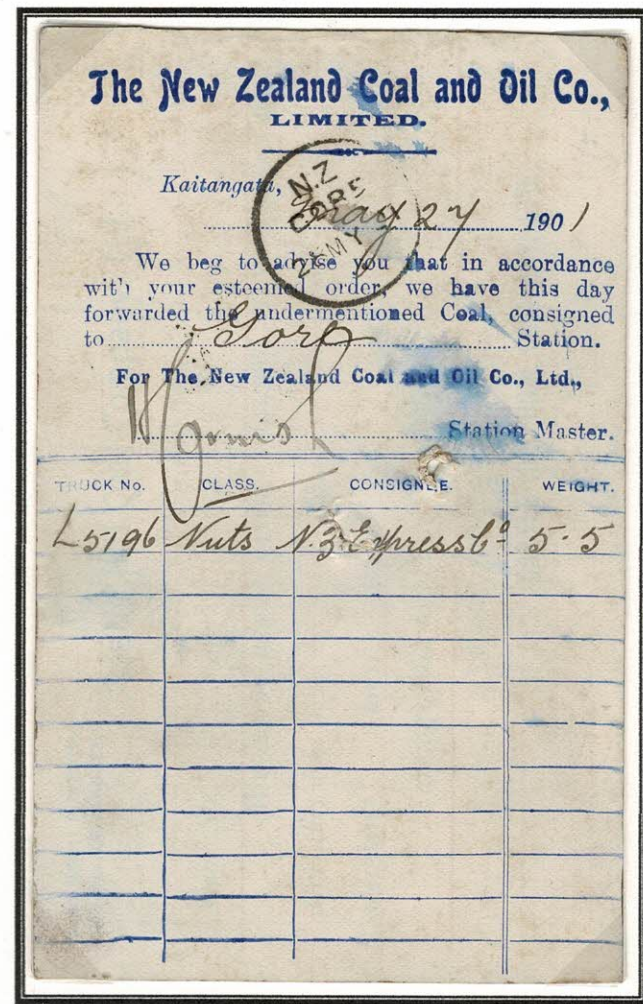 The New Zealand Coal and Oil Co.,
LIMITED.
Kaitangata,
May 27 1901
N.Z
GORE
28 MY
We beg to advise you that in accordance
with your esteemed order, we have this day
forwarded the undermentioned Coal, consigned
to Gore Station.
For The New Zealand Coal and Oil Co., Ltd.,
Station Master.
TRUCK No. CLASS. CONSIGNEE. WEIGHT.
L5196 Nuts N.Z Express Co 5-5